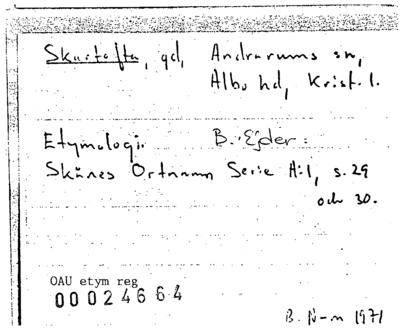 Skartofta, gd, Andrarums sn,
Albo hd, Krist. l.
Etymologi: B. Ejder:
Skånes Ortnamn Serie A:1, s. 29
och 30.
OAU etym reg
00024664
B. N-m 1971